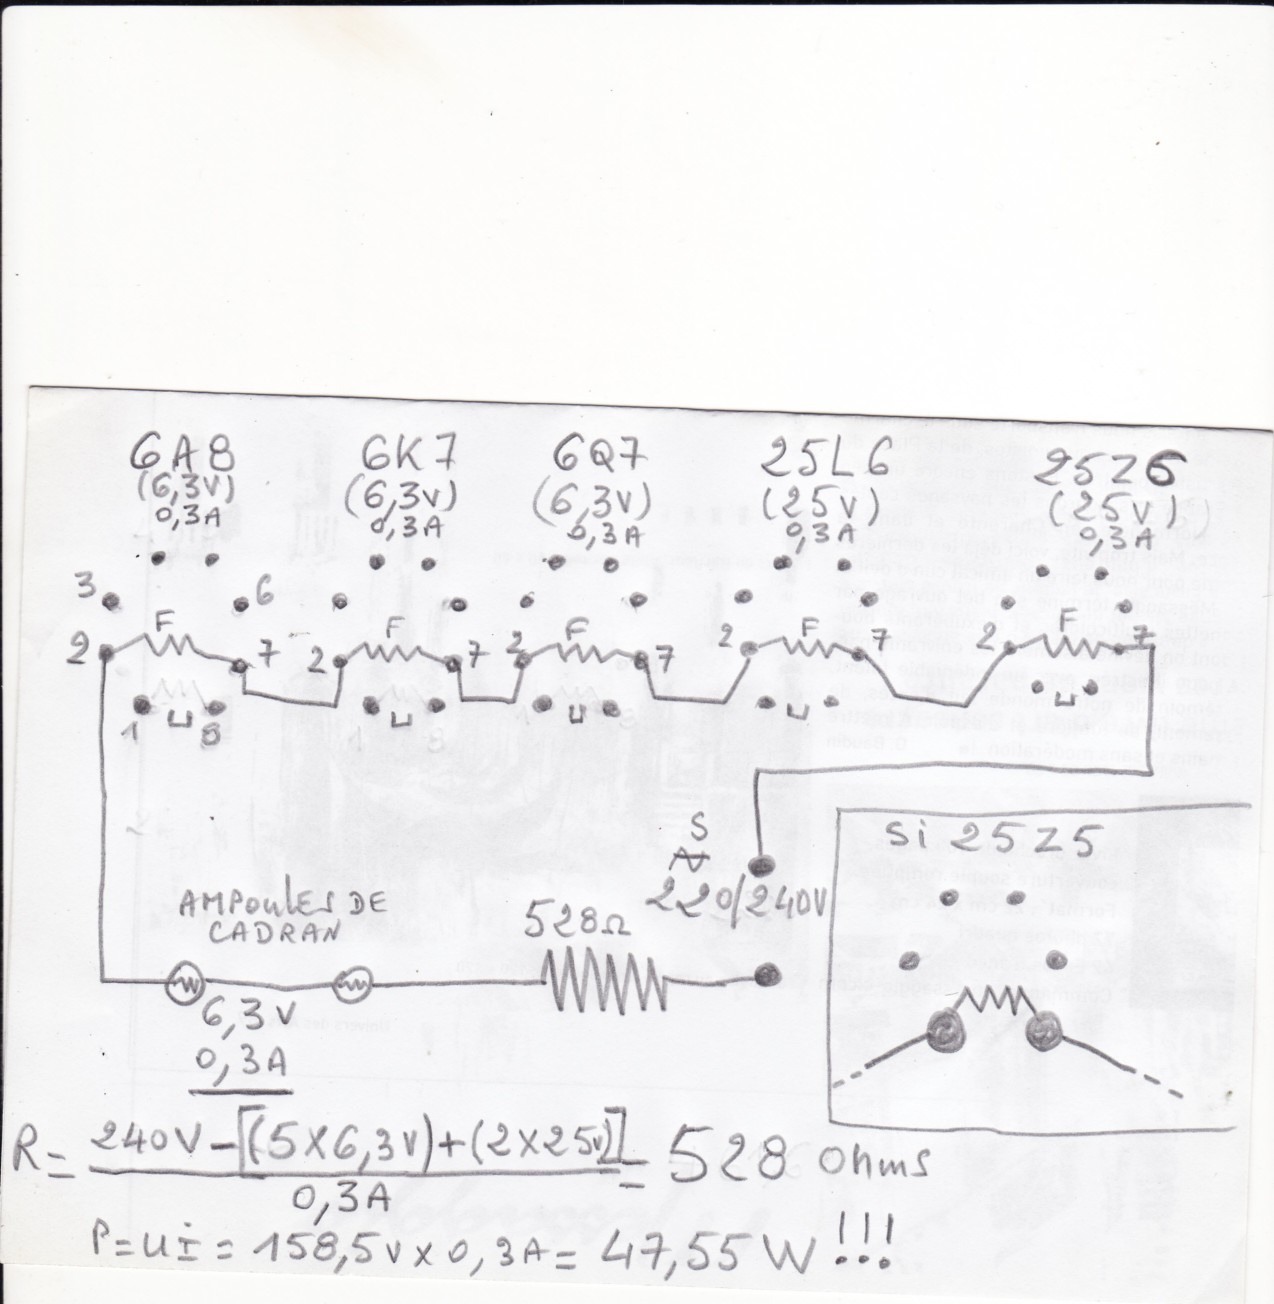 6A8 6K7 6Q7 25L6 25Z6
(6,3V) (6,3V) (6,3V) (25V) (25V)
0,3A 0,3A 0,3A 0,3A 0,3A
3 6
F F F F F
2 7 2 7 2 7 2 7 2 7
1 8 1 8 1 8
si 25Z5
S
220/240V
AMPOULES DE
CADRAN
528Ω
6,3V
0,3A
R = 240V - [(5X6,3V) + (2X25V)] = 528 ohms
0,3A
P = UI = 158,5V X 0,3A = 47,55 W !!!